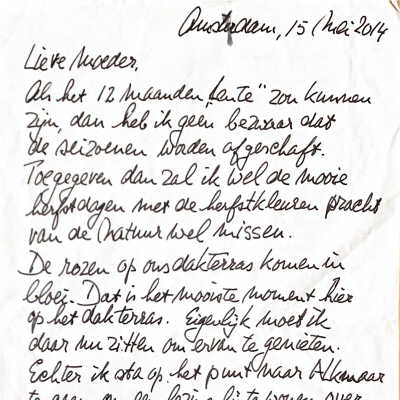 Amsterdam, 15 Mei 2014
Lieve Moeder,
Als het 12 maanden „lente” zou kunnen
zijn, dan heb ik geen bezwaar dat
de seizoenen worden afgeschaft.
Toegegeven dan zal ik wel de mooie
herfstdagen met de herfstkleuren pracht
van de Natuur wel missen.
De rozen op ons dakterras komen in
bloei. Dat is het mooiste moment hier
op het dakterras. Eigenlijk moet ik
daar nu zitten om ervan te genieten.
Echter ik sta op het punt naar Alkmaar
te gaan om een lezing bij te wonen over